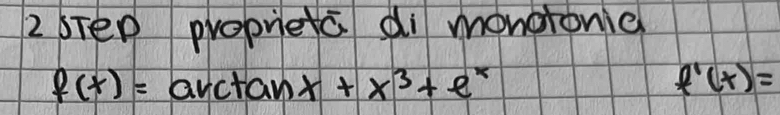 2 STEP proprietà di monotonia
f(x) = arctanx + x³ + eˣ f'(x) =